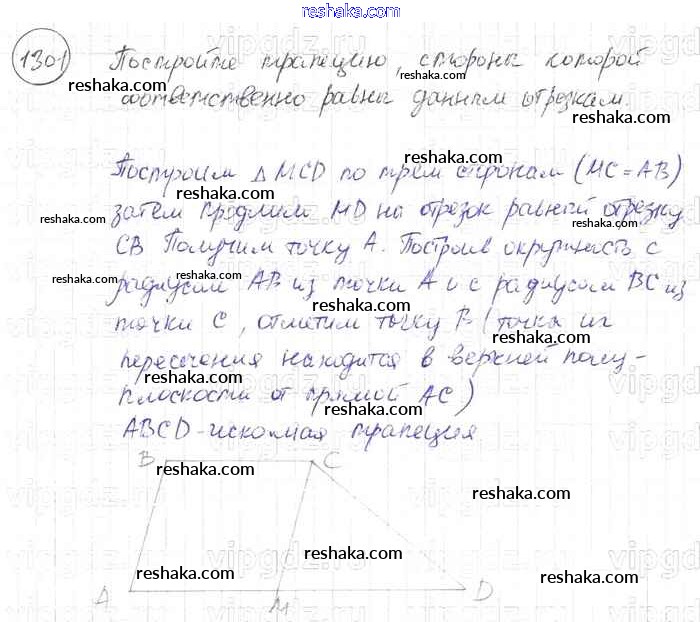 reshaka.com
1301 Постройте трапецию, стороны которой
reshaka.com reshaka.com
соответственно равны данным отрезкам.
reshaka.com
Построим △ MCD по трём сторонам (MC = AB)
reshaka.com reshaka.com
затем продлим MD на отрезок равный отрезку
reshaka.com reshaka.com
CB Получим точку A. Построив окружность с
reshaka.com reshaka.com
радиусом AB из точки A и с радиусом BC из
reshaka.com
точки C, отметим точку B (точка их
reshaka.com
пересечения находится в верхней полу-
reshaka.com
плоскости от прямой AC)
reshaka.com
ABCD - искомая трапеция
reshaka.com
B C
reshaka.com
reshaka.com
reshaka.com
reshaka.com reshaka.com
A M D